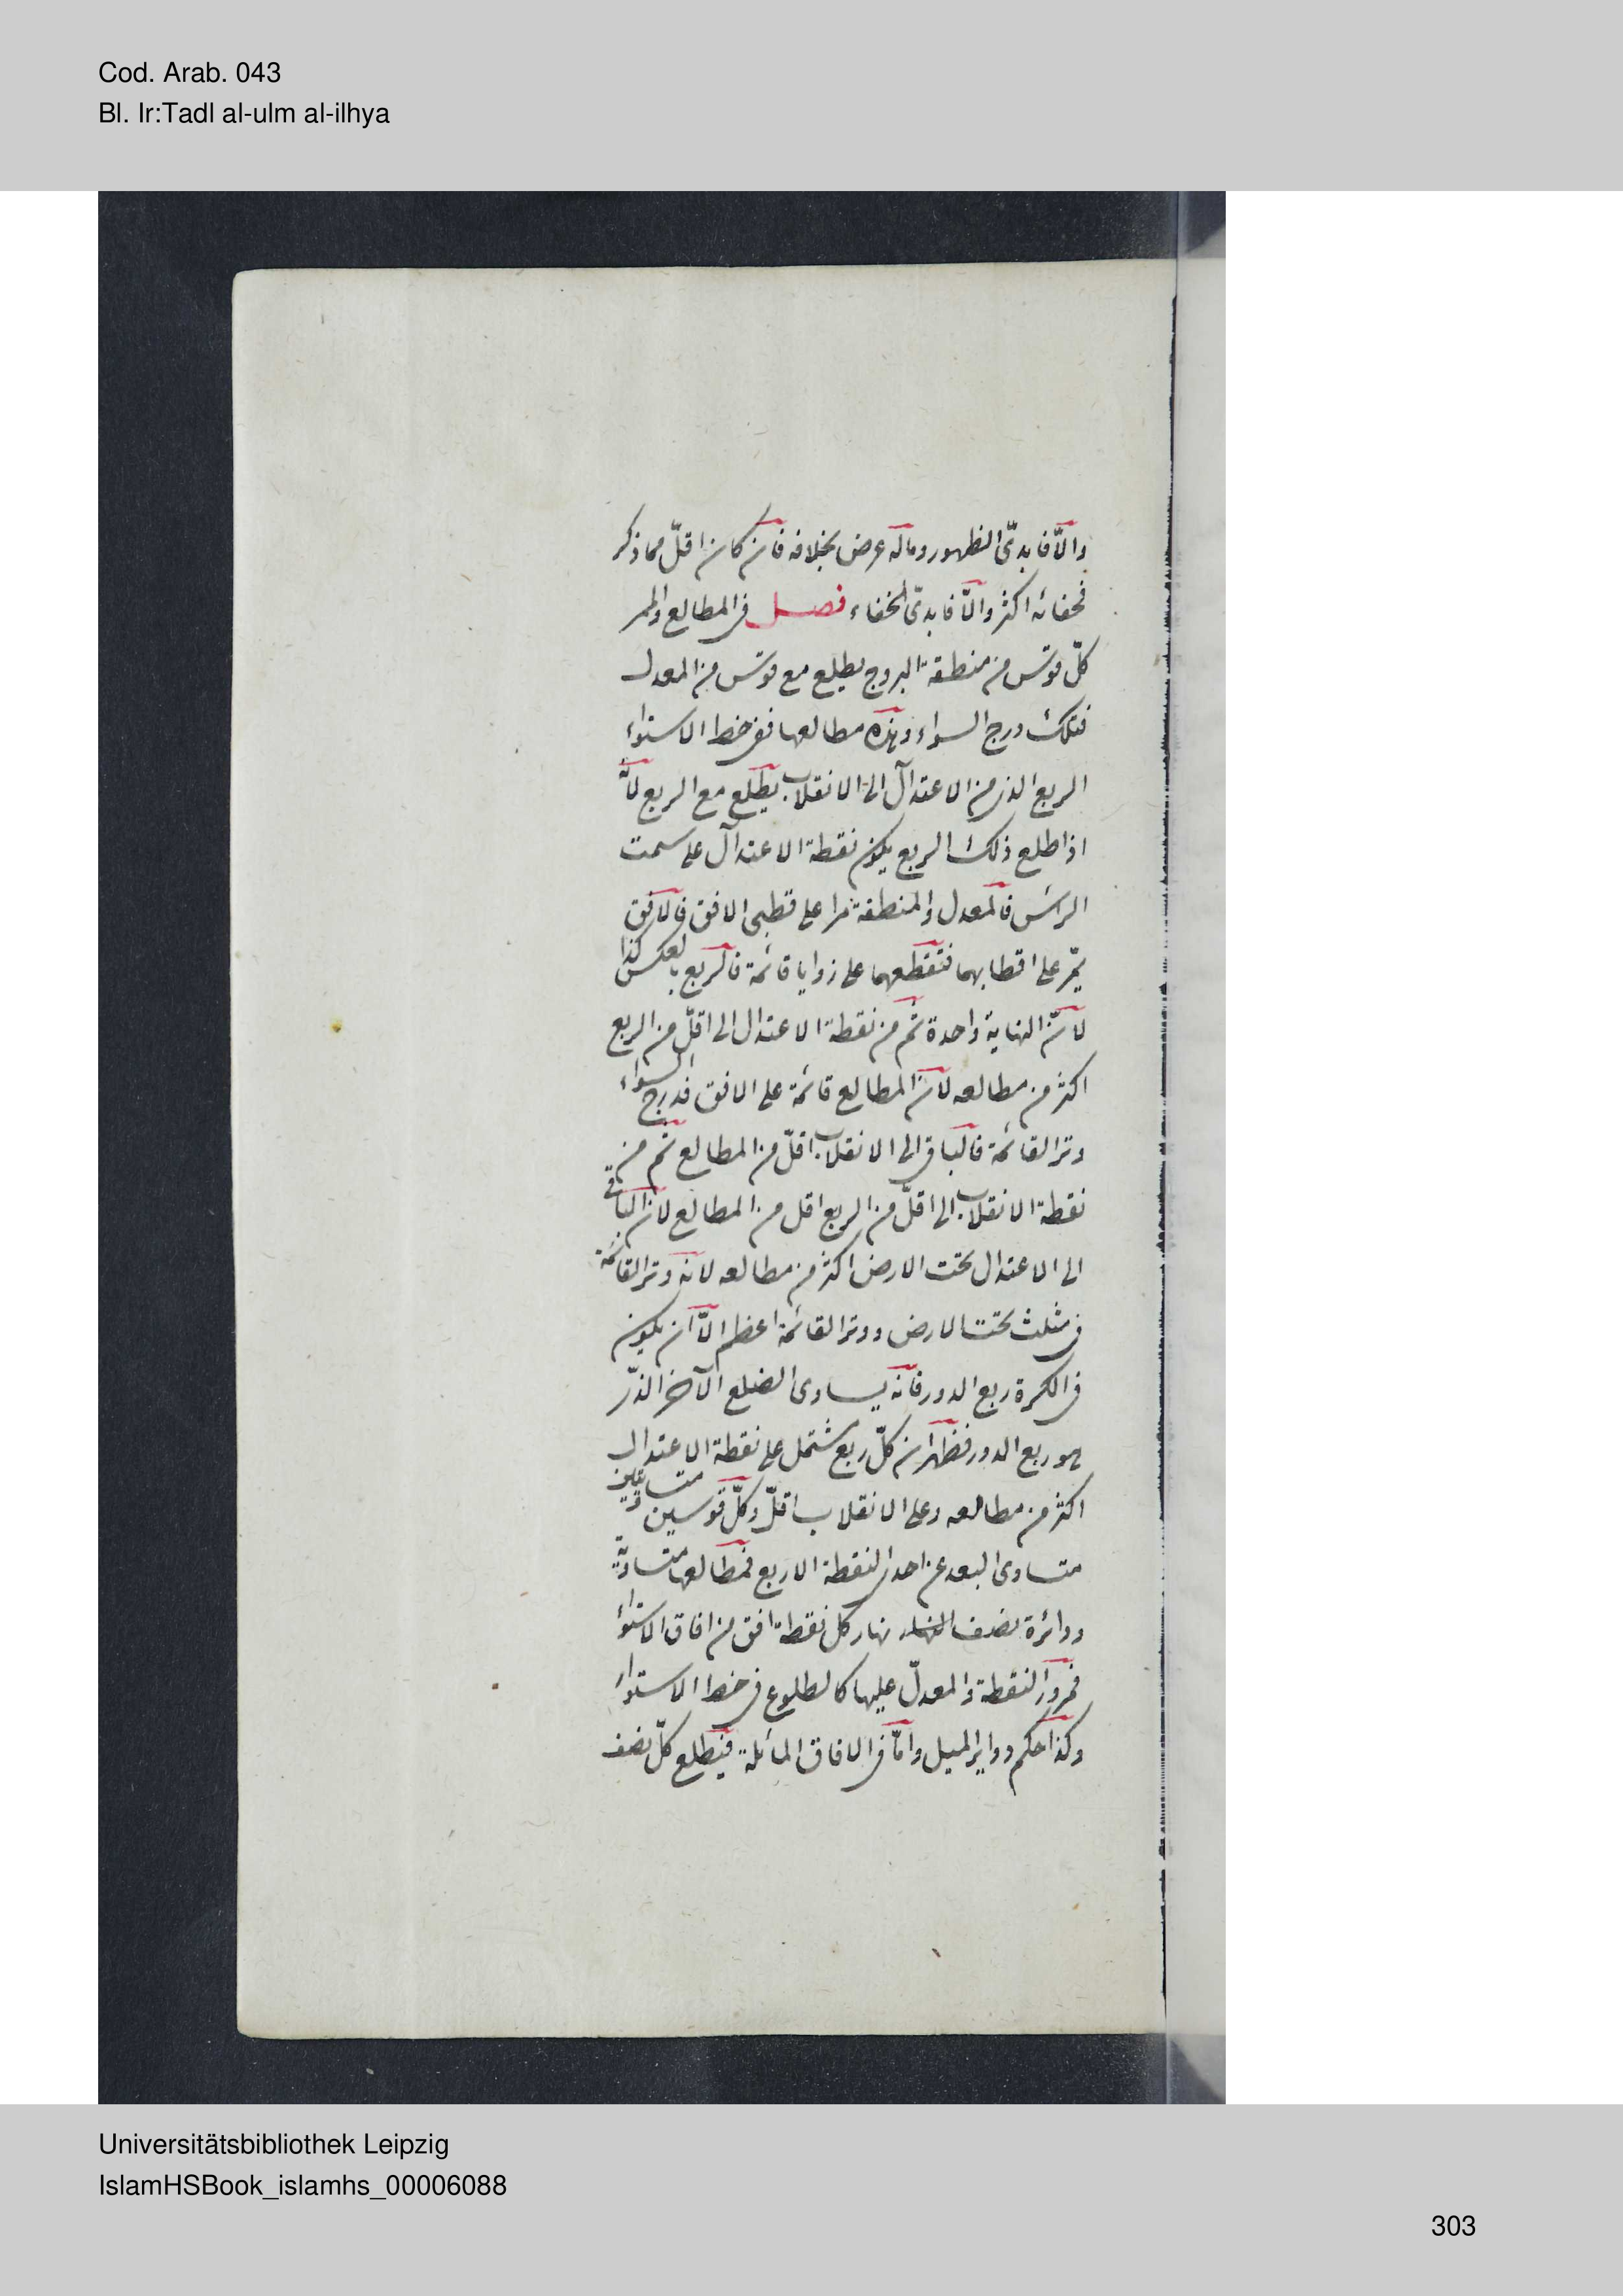 Cod. Arab. 043
Bl. Ir:Tadl al-ulm al-ilhya
والّا فابدىّ الظهور وماله عرض بخلافه فان كان اقلّ مما ذكر
فخفائه اكثر والّا فابدىّ الخفاء فصل فى المطالع والممر
كلّ قوس من منطقة البروج يطلع مع قوس من المعدل
فتلك درج السواء وهذه مطالعها ففى خط الاستواء
الربع الذى من الاعتدال الى الانقلاب يطلع مع الربع لانّه
اذا طلع ذلك الربع يكون نقطة الاعتدال على سمت
الراس فالمعدل والمنطقة مرا على قطبى الافق فالافق
يمّر على اقطابهما فتقطعهما على زوايا قائمة فالربع بالعكس كذا
لانّ النهاية واحدة ثم من نقطة الاعتدال الى اقلّ من الربع
اكثر من مطالعه لان المطالع قائمة على الافق فدرج السواء
وتر القائمة فالباقى الى الانقلاب اقلّ من المطالع ثم من
نقطة الانقلاب الى اقلّ من الربع اقل من المطالع لان الباقى
الى الاعتدال تحت الارض اكثر من مطالعه لانه وتر القائمة
فى مثلث تحت الارض ووتر القائمة اعظم الّا ان يكون
فى الكرة ربع الدور فانّه يساوى الضلع الآخر الذى
هو ربع الدور فظهر ان كلّ ربع مشتمل على نقطة الاعتدال
اكثر من مطالعه وعلى الانقلاب اقلّ وكلّ قوسين متساويتين
متساوى البعد عن احدى النقطة الاربع فمطالعها متساوية
ودائرة نصف النهار نهار كل نقطة افق من افاق الاستواء
فمرور النقطة والمعدلّ عليها كالطلوع فى خط الاستواء
وكذا حكم دواير الميل وامّا فى الافاق المائلة فيطلع كلّ نصف
Universitätsbibliothek Leipzig
IslamHSBook_islamhs_00006088
303